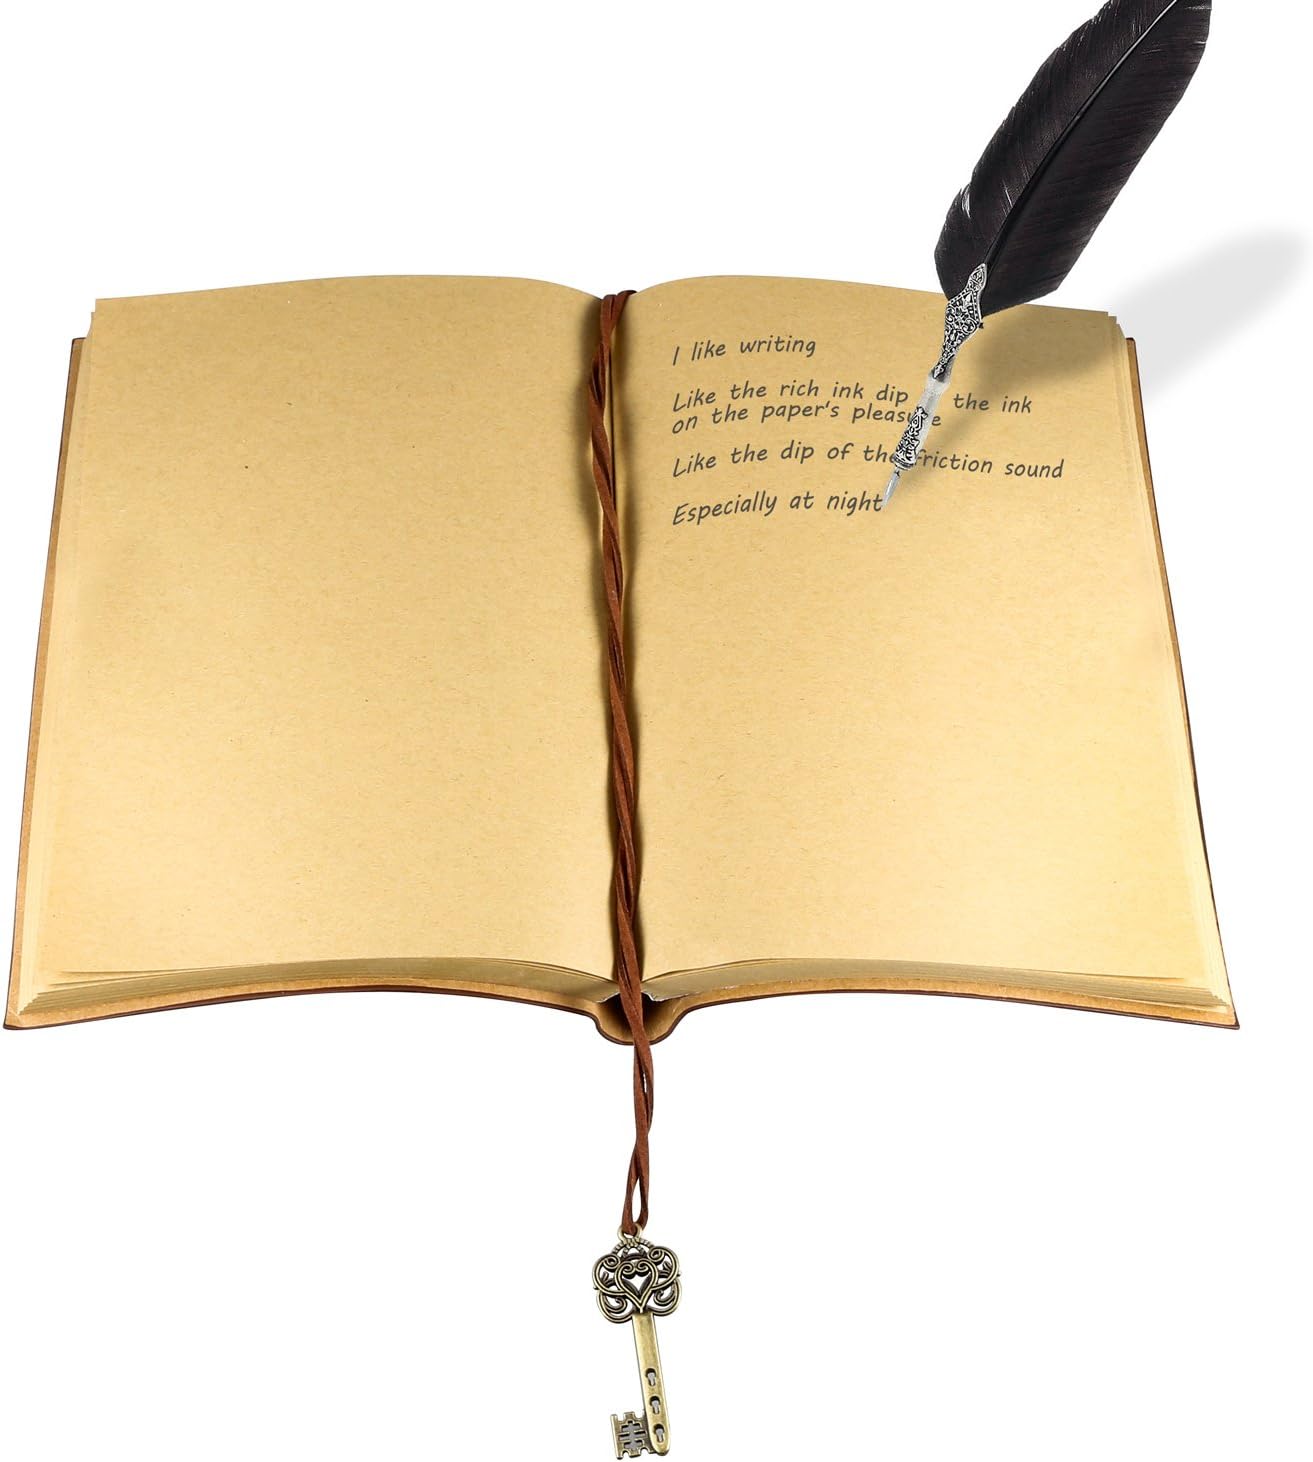 I like writing
Like the rich ink dip the ink
on the paper's pleasure
Like the dip of the friction sound
Especially at night